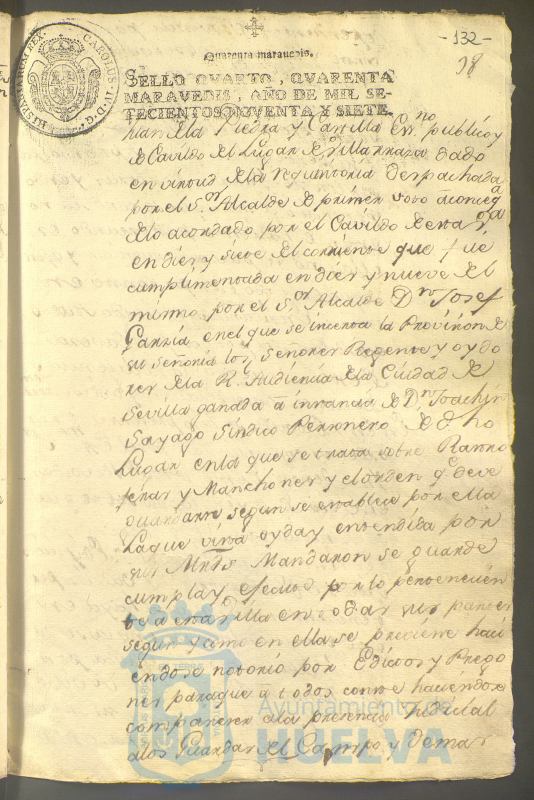 -132-
98
Quarenta maravedis.
SELLO QVARTO, QVARENTA
MARAVEDIS, AÑO DE MIL SE-
TECIENTOS NOVENTA Y SIETE.
CAROLUS IV. D. G. HISPANIARUM REX.
Juan de la Piedra y Carrilla Esno publico y
de Cavildo del Lugar de Villarrasa dado
en virtud de la requisitoria despachada
por el Sor Alcalde de primer voto a conseqa
de lo acordado por el Cavildo de esta
en diez y siete del corriente que fue
cumplimentada en diez y nueve del
mismo por el Sor Alcalde Dn Josef
Garzia en el que se incerta la Provision de
su Señoria los Señores Regente y oydo
res de la R. Audiencia de la Ciudad de
Sevilla ganada a instancia de Dn Joachin
Sayago Sindico Personero de dho
Lugar en la que se trata sobre Rastro
feras y Manchones y el orden qe deve
guardarse segun se establece por ella
La que vista oyda y entendida por
sus Mrds Mandaron se guarde
cumpla y efectue por lo perteneciен
te a esta villa en todas sus partes
segun y como en ella se previene haci
endose notorio por Edictos y Prego
nes para que a todos conste haciendose
comparecer a la presencia judicial
a los Guardas del Campo y demas
Ayuntamiento de
HUELVA